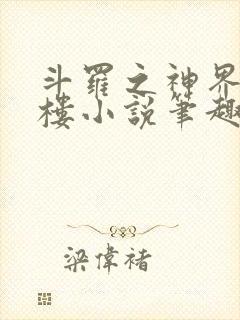 斗羅之神界
樓小說筆趣
梁偉褚